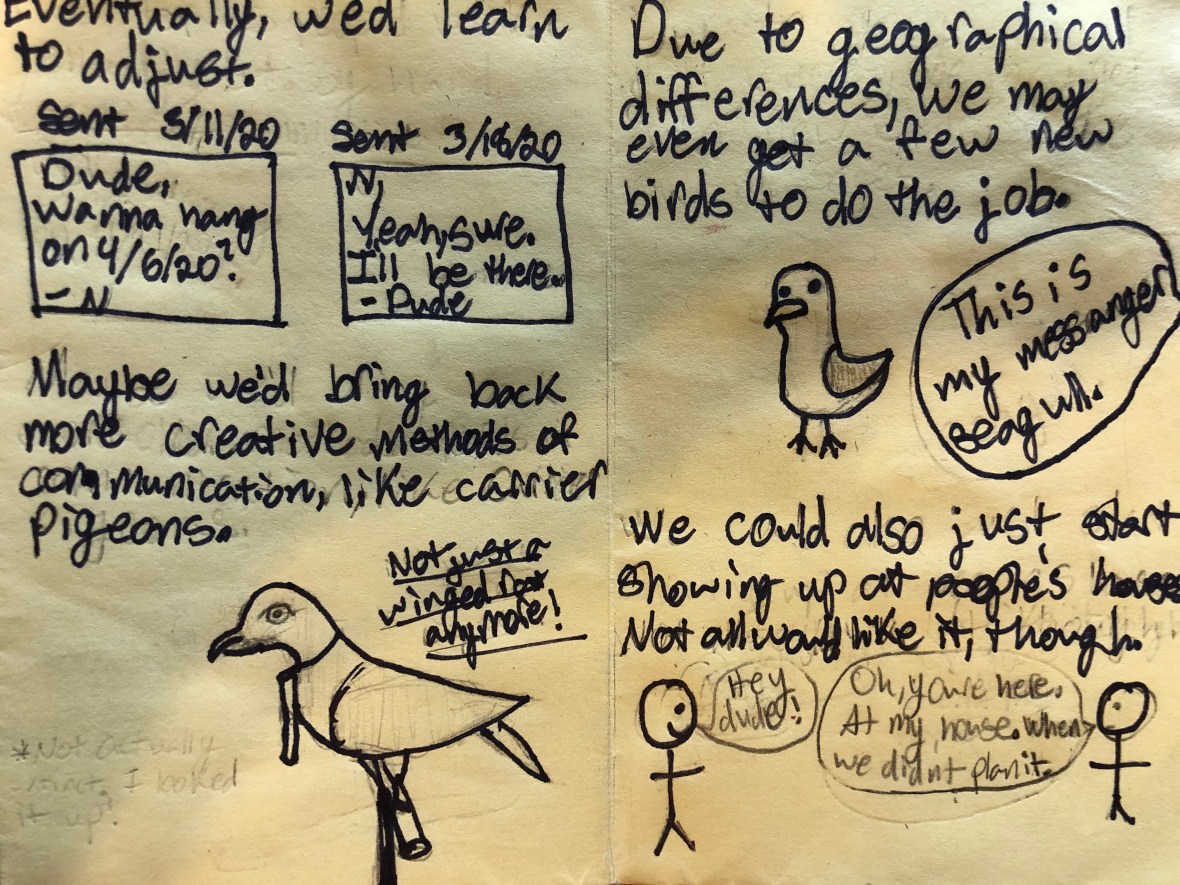 Eventually, we'd learn
to adjust.
Sent 3/11/20
Dude,
Wanna hang
on 4/6/20?
- N
Sent 3/16/20
N,
Yeah, sure.
I'll be there.
- Dude
Maybe we'd bring back
more creative methods of
communication, like carrier
pigeons.
Not just a
winged rat
anymore!
*Not actually
extinct. I looked
it up!
Due to geographical
differences, we may
even get a few new
birds to do the job.
This is
my messanger
seagull.
We could also just start
showing up at people's houses
Not all would like it, though.
Hey
dude!
Oh, you're here.
At my house. When
we didnt plan it.